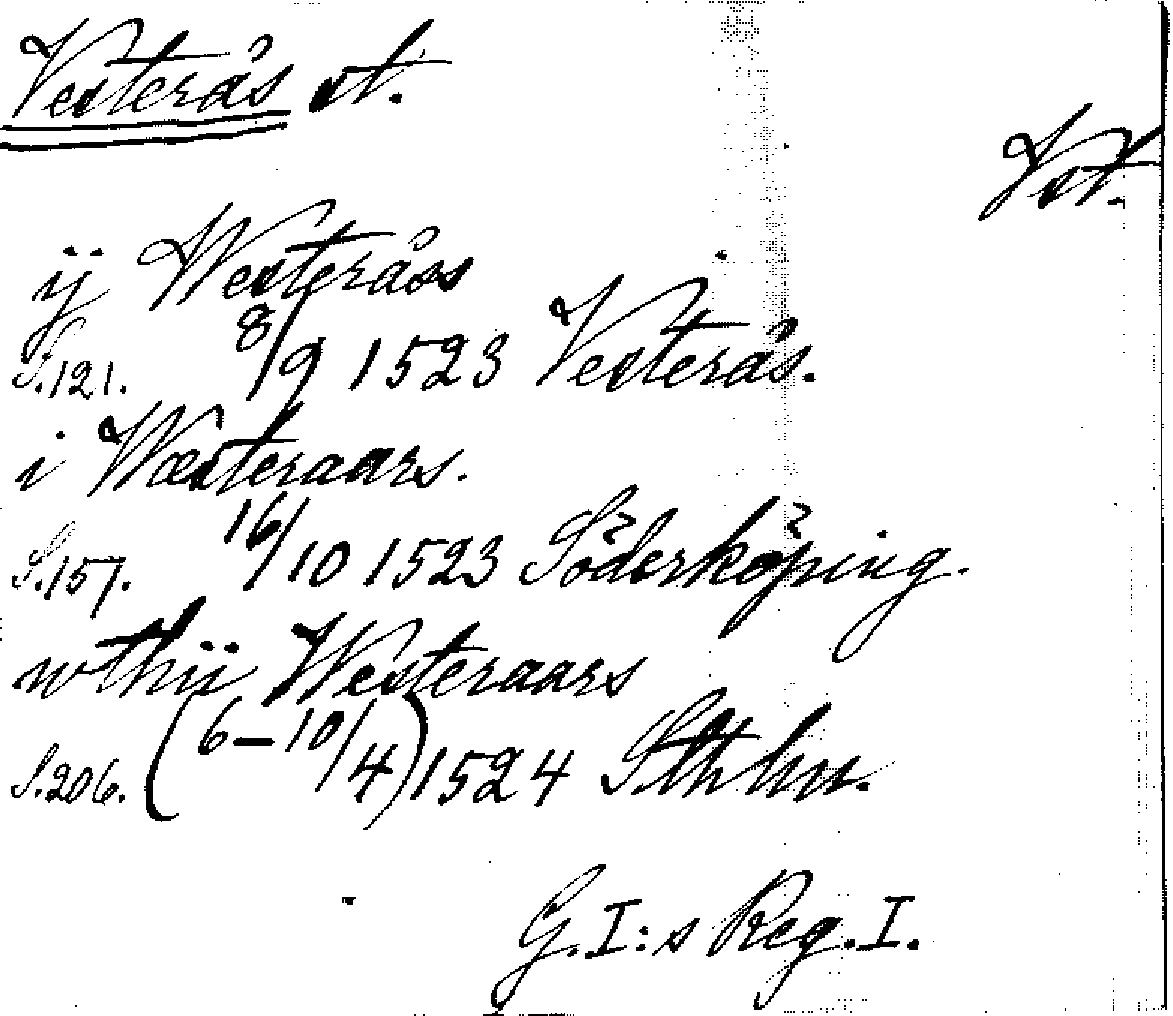 Vesterås st.
Vst.
ij Westeråss
S.121. 8/9 1523 Vesterås.
i Wæsteraars.
S.157. 16/10 1523 Söderköping.
wthii Westeraars
S.206. (6-10/4) 1524 Sthlm.
G.I:s Reg. I.